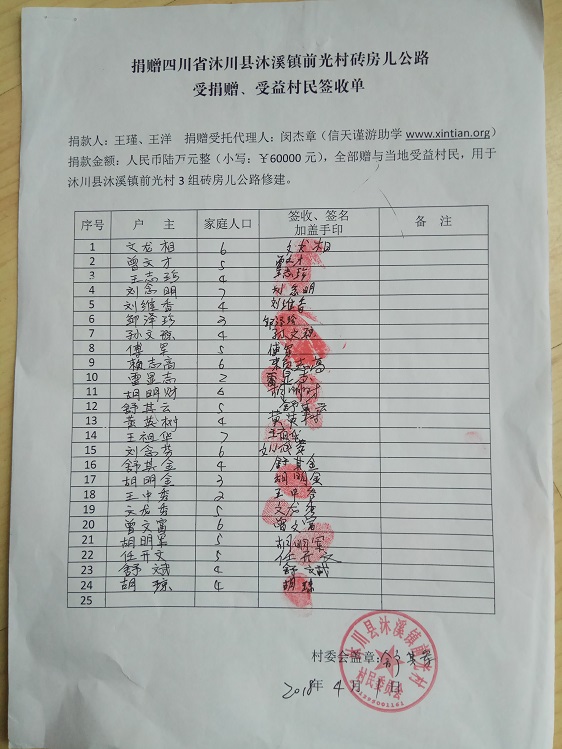 捐赠四川省沐川县沐溪镇前光村砖房儿公路
受捐赠、受益村民签收单
捐款人：王瑾、王洋 捐赠受托代理人：闵杰章（信天谨游助学 www.xintian.org）
捐款金额：人民币陆万元整（小写：￥60000 元），全部赠与当地受益村民，用于
沐川县沐溪镇前光村 3 组砖房儿公路修建。
序号 户 主 家庭人口 签收、签名 加盖手印 备 注
1 文龙相 6 文龙相
2 曾文才 5
3 王志珍 4 王志珍
4 刘念明 7 刘念明
5 刘维香 4 刘维香
6 邹泽珍 3 邹泽珍
7 孙文琼 4 孙文琼
8 傅军 5 傅军
9 赖志高 6
10 雷显志 2
11 胡明财 6 胡明财
12 舒其云 5 舒其云
13 黄英树 4 黄英树
14 王祖华 7 王祖华
15 刘念芳 6
16 舒其金 4 舒其金
17 胡明金 3 胡明金
18 王中香 2 王中香
19 文龙香 5 文龙香
20 曾文富 6 曾文富
21 胡明军 5 胡明军
22 任开文 5 任开文
23 舒文斌 4 舒文斌
24 胡琼 4 胡琼
25
村委会盖章：舒其
沐川县沐溪镇前光村
村民委员会
2018年 4 月 1 日